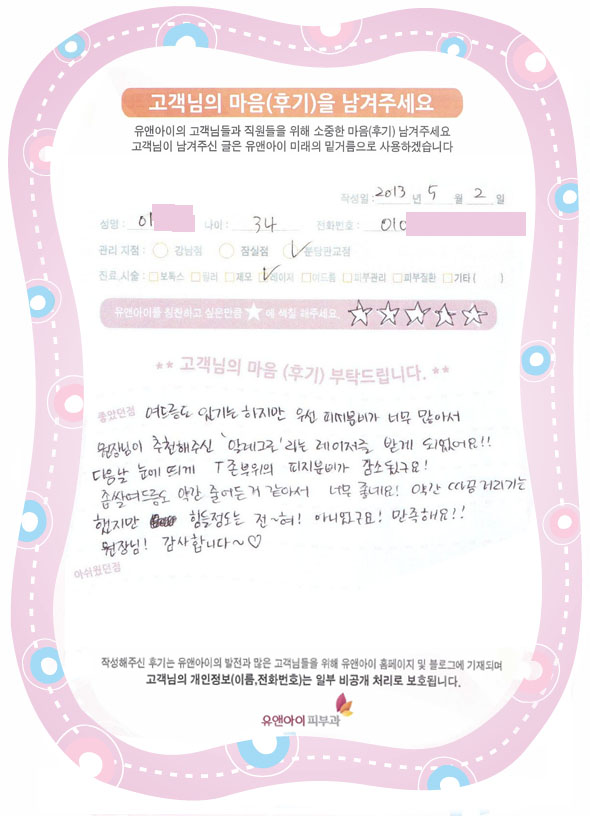 고객님의 마음(후기)을 남겨주세요
유앤아이의 고객님들과 직원들을 위해 소중한 마음(후기) 남겨주세요
고객님이 남겨주신 글은 유앤아이 미래의 밑거름으로 사용하겠습니다
작성일 : 2013 년 5 월 2 일
성명 : 이 나이 : 34 전화번호 : 010
관리 지점 : 강남점 잠실점 분당판교점
진료,시술 : 보톡스 필러 제모 레이저 여드름 피부관리 피부질환 기타 ( )
유앤아이를 칭찬하고 싶은만큼 ★ 에 색칠 해주세요. ☆☆☆☆☆
** 고객님의 마음 (후기) 부탁드립니다. **
좋았던점 여드름도 있기는 하지만 우선 피지분비가 너무 많아서
원장님이 추천해주신 '알레그로'라는 레이저를 받게 되었어요!!
다음날 눈에 띄게 T존부위의 피지분비가 감소됬구요!
좁쌀여드름도 약간 줄어든거 같아서 너무 좋네요! 약간 따끔거리기는
했지만 힘들정도는 전~혀! 아니었구요! 만족해요!!
원장님! 감사합니다~♡
아쉬웠던점
작성해주신 후기는 유앤아이의 발전과 많은 고객님들을 위해 유앤아이 홈페이지 및 블로그에 기재되며
고객님의 개인정보(이름,전화번호)는 일부 비공개 처리로 보호됩니다.
유앤아이피부과